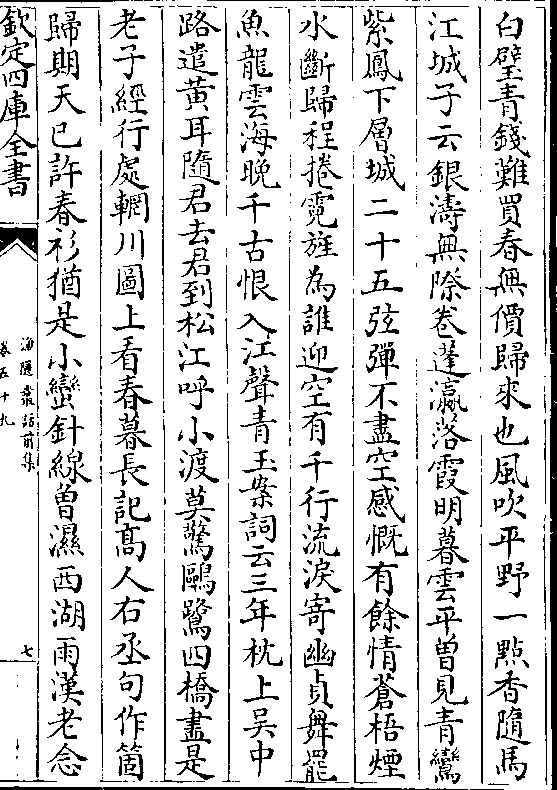 白璧青錢難買春無價歸來也風吹平野一點香隨馬
江城子云銀濤無際卷蓬瀛落霞明暮雲平曽見青鸞
紫鳳下層城二十五弦彈不盡空感慨有餘情蒼梧煙
水斷歸程捲霓旌為誰迎空有千行流淚寄幽貞舞罷
魚龍雲海晚千古恨入江聲青玉案詞云三年枕上吳中
路遣黄耳隨君去君到松江呼小渡莫驚鷗鷺四橋盡是
老子經行處輞川圖上看春暮長記髙人右丞句作箇
歸期天已許春衫猶是小蠻針線曽濕西湖雨漢老念
欽定四庫全書
漁隱叢話前集
卷五十九
七